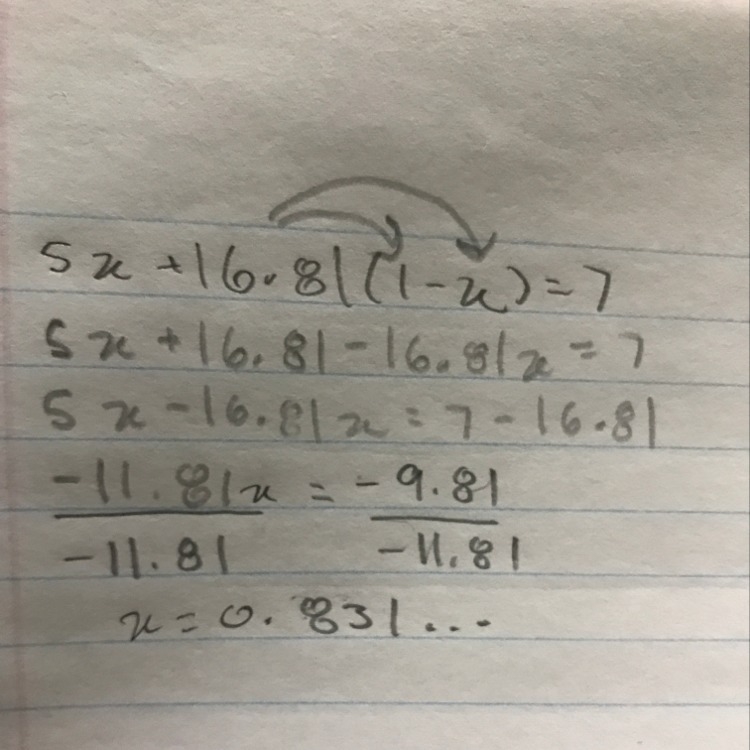 5x + 16.81(1-x) = 7
5x + 16.81 - 16.81x = 7
5x - 16.81x = 7 - 16.81
-11.81x = -9.81
-11.81 -11.81
x = 0.831...